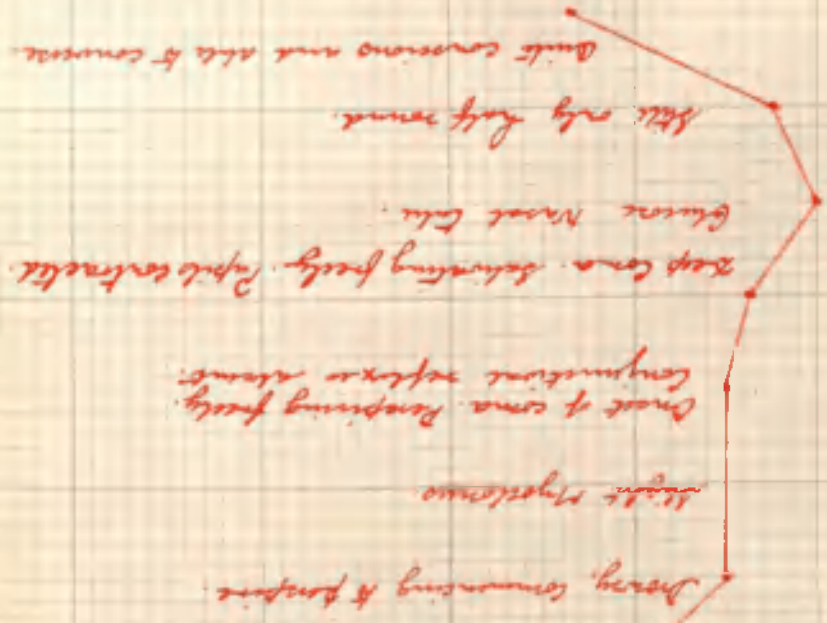 Drowsy, Commencing to perspire.
Slight Myoclonus.
Onset of coma. Perspiring freely.
Conjunctival reflexes absent.
Deep Coma. Salivating freely. Pupils contracted.
Glucose Nasal tube.
Still only half round.
Quite conscious and able to converse.